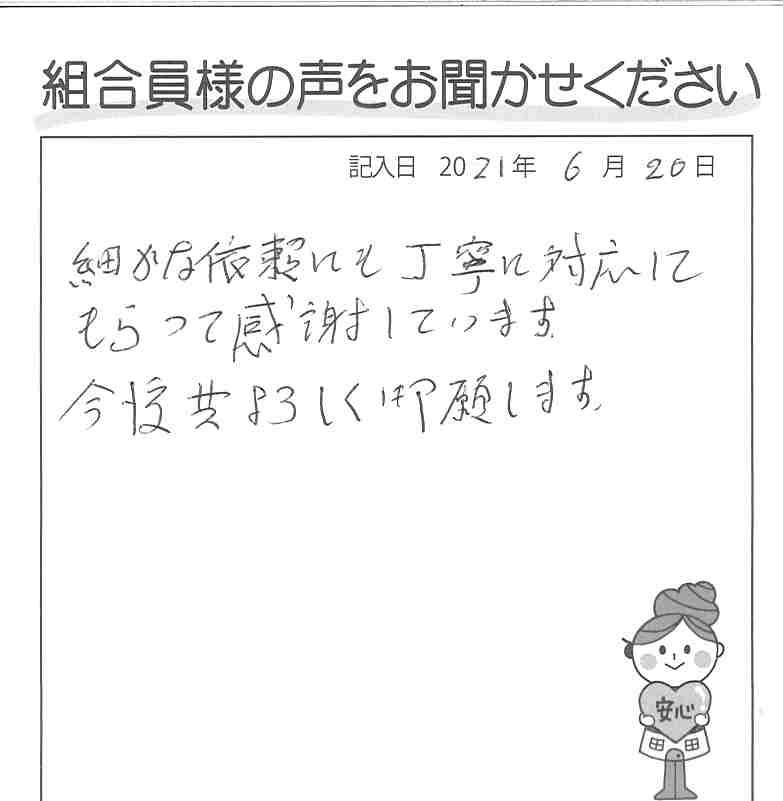 組合員様の声をお聞かせください
記入日 2021年 6月 20日
細かな依頼にも丁寧に対応して
もらって感謝しています。
今後共よろしく御願します。
安心